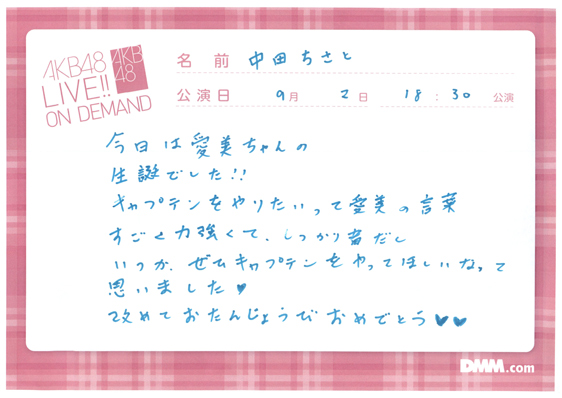 AKB48
LIVE!!
ON DEMAND
AKB
48
名 前 中田ちさと
公演日 9月 2日 18:30 公演
今日は愛美ちゃんの
生誕でした!!
キャプテンをやりたいって愛美の言葉
すごく力強くて、しっかり者だし
いつか、ぜひキャプテンをやってほしいなって
思いました♥
改めておたんじょうびおめでとう♥♥
DMM.com